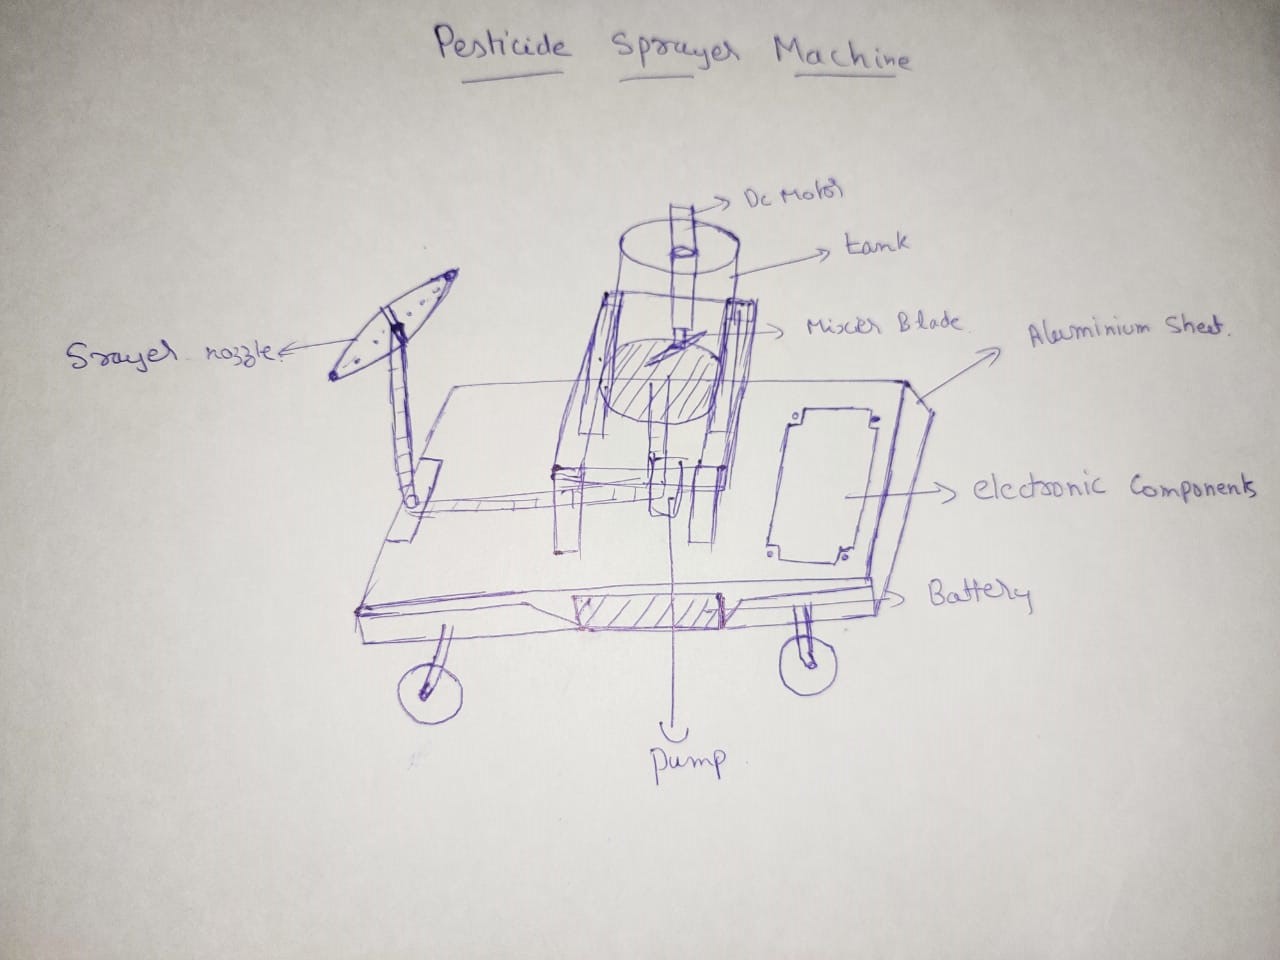 Pesticide Sprayer Machine
Dc Motor
tank
Mixer Blade
Aluminium Sheet.
Srayer nozzle
electronic Components
Battery
Pump